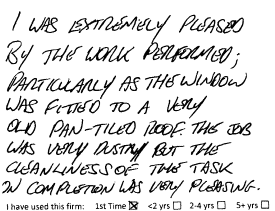 I WAS EXTREMELY PLEASED
BY THE WORK PERFORMED;
PARTICULARLY AS THE WINDOW
WAS FITTED TO A VERY
OLD PAN-TILED ROOF. THE JOB
WAS VERY DUSTY BUT THE
CLEANLINESS OF THE TASK
ON COMPLETION WAS VERY PLEASING.
I have used this firm: 1st Time ☒ <2 yrs ☐ 2-4 yrs ☐ 5+ yrs ☐